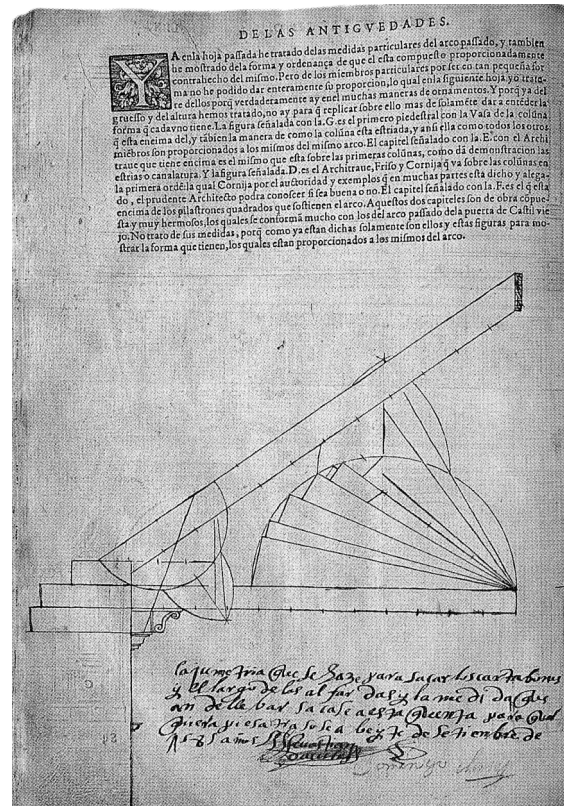 DE LAS ANTIGVEDADES.
YA en la hoja passada he tratado de las medidas particulares del arco passado, y tambien
he mostrado del a forma y ordenança de que el esta compuesto proporcionadamente
contrahecho del mismo. Pero de los miembros particulares por ser en tan pequeña for
ma no he podido dar enteramente su proporcion, lo qual en la siguiente hoja yo trata-
re dellos porq̃ verdaderamente ay en el muchas maneras de ornamentos. Y porq̃ ya del
gruesso y del altura hemos tratado, no ay para q̃ replicar sobre ello mas de solamẽte dar a entẽder la
forma q̃ cada vno tiene. La figura señalada con la .G. es el primero piedestral con la Vasa de la colũna
q̃ esta encima del, y tãbien la manera de como la colũna esta estriada, y ansi ella como todos los otros
miẽbros son proporcionados a los mismos del mismo arco. El capitel señalado con la .E. con el Archi
traue que tiene encima es el mismo que esta sobre las primeras colũnas, como dà demonstracion las
estrias o canalatura. Y la figura señalada .D. es el Architraue, Friso y Cornija q̃ va sobre las colũnas en
la primera ordẽ: la qual Cornija por el auctoridad y exemplos q̃ en muchas partes esta dicho y alega-
do, el prudente Architecto podra conoscer si sea buena o no. El capitel señalado con la .F. es el q̃ esta
encima de los pilastrones quadrados que sostienen el arco. Aquestos dos capiteles son de obra cõpue
sta, y muy hermosos, los quales se conformã mucho con los del arco passado dela puerta de Castil vie
jo. No trato de sus medidas, porq̃ como ya estan dichas solamente son ellos y estas figuras para mo-
strar la forma que tienen, los quales estan proporcionados a los mismos del arco.
la jumetria que se haze para sacar los cartabones
y el largo de las alfardas y la medida que
an de llebar sacase a esta quenta para qual
quiera
años